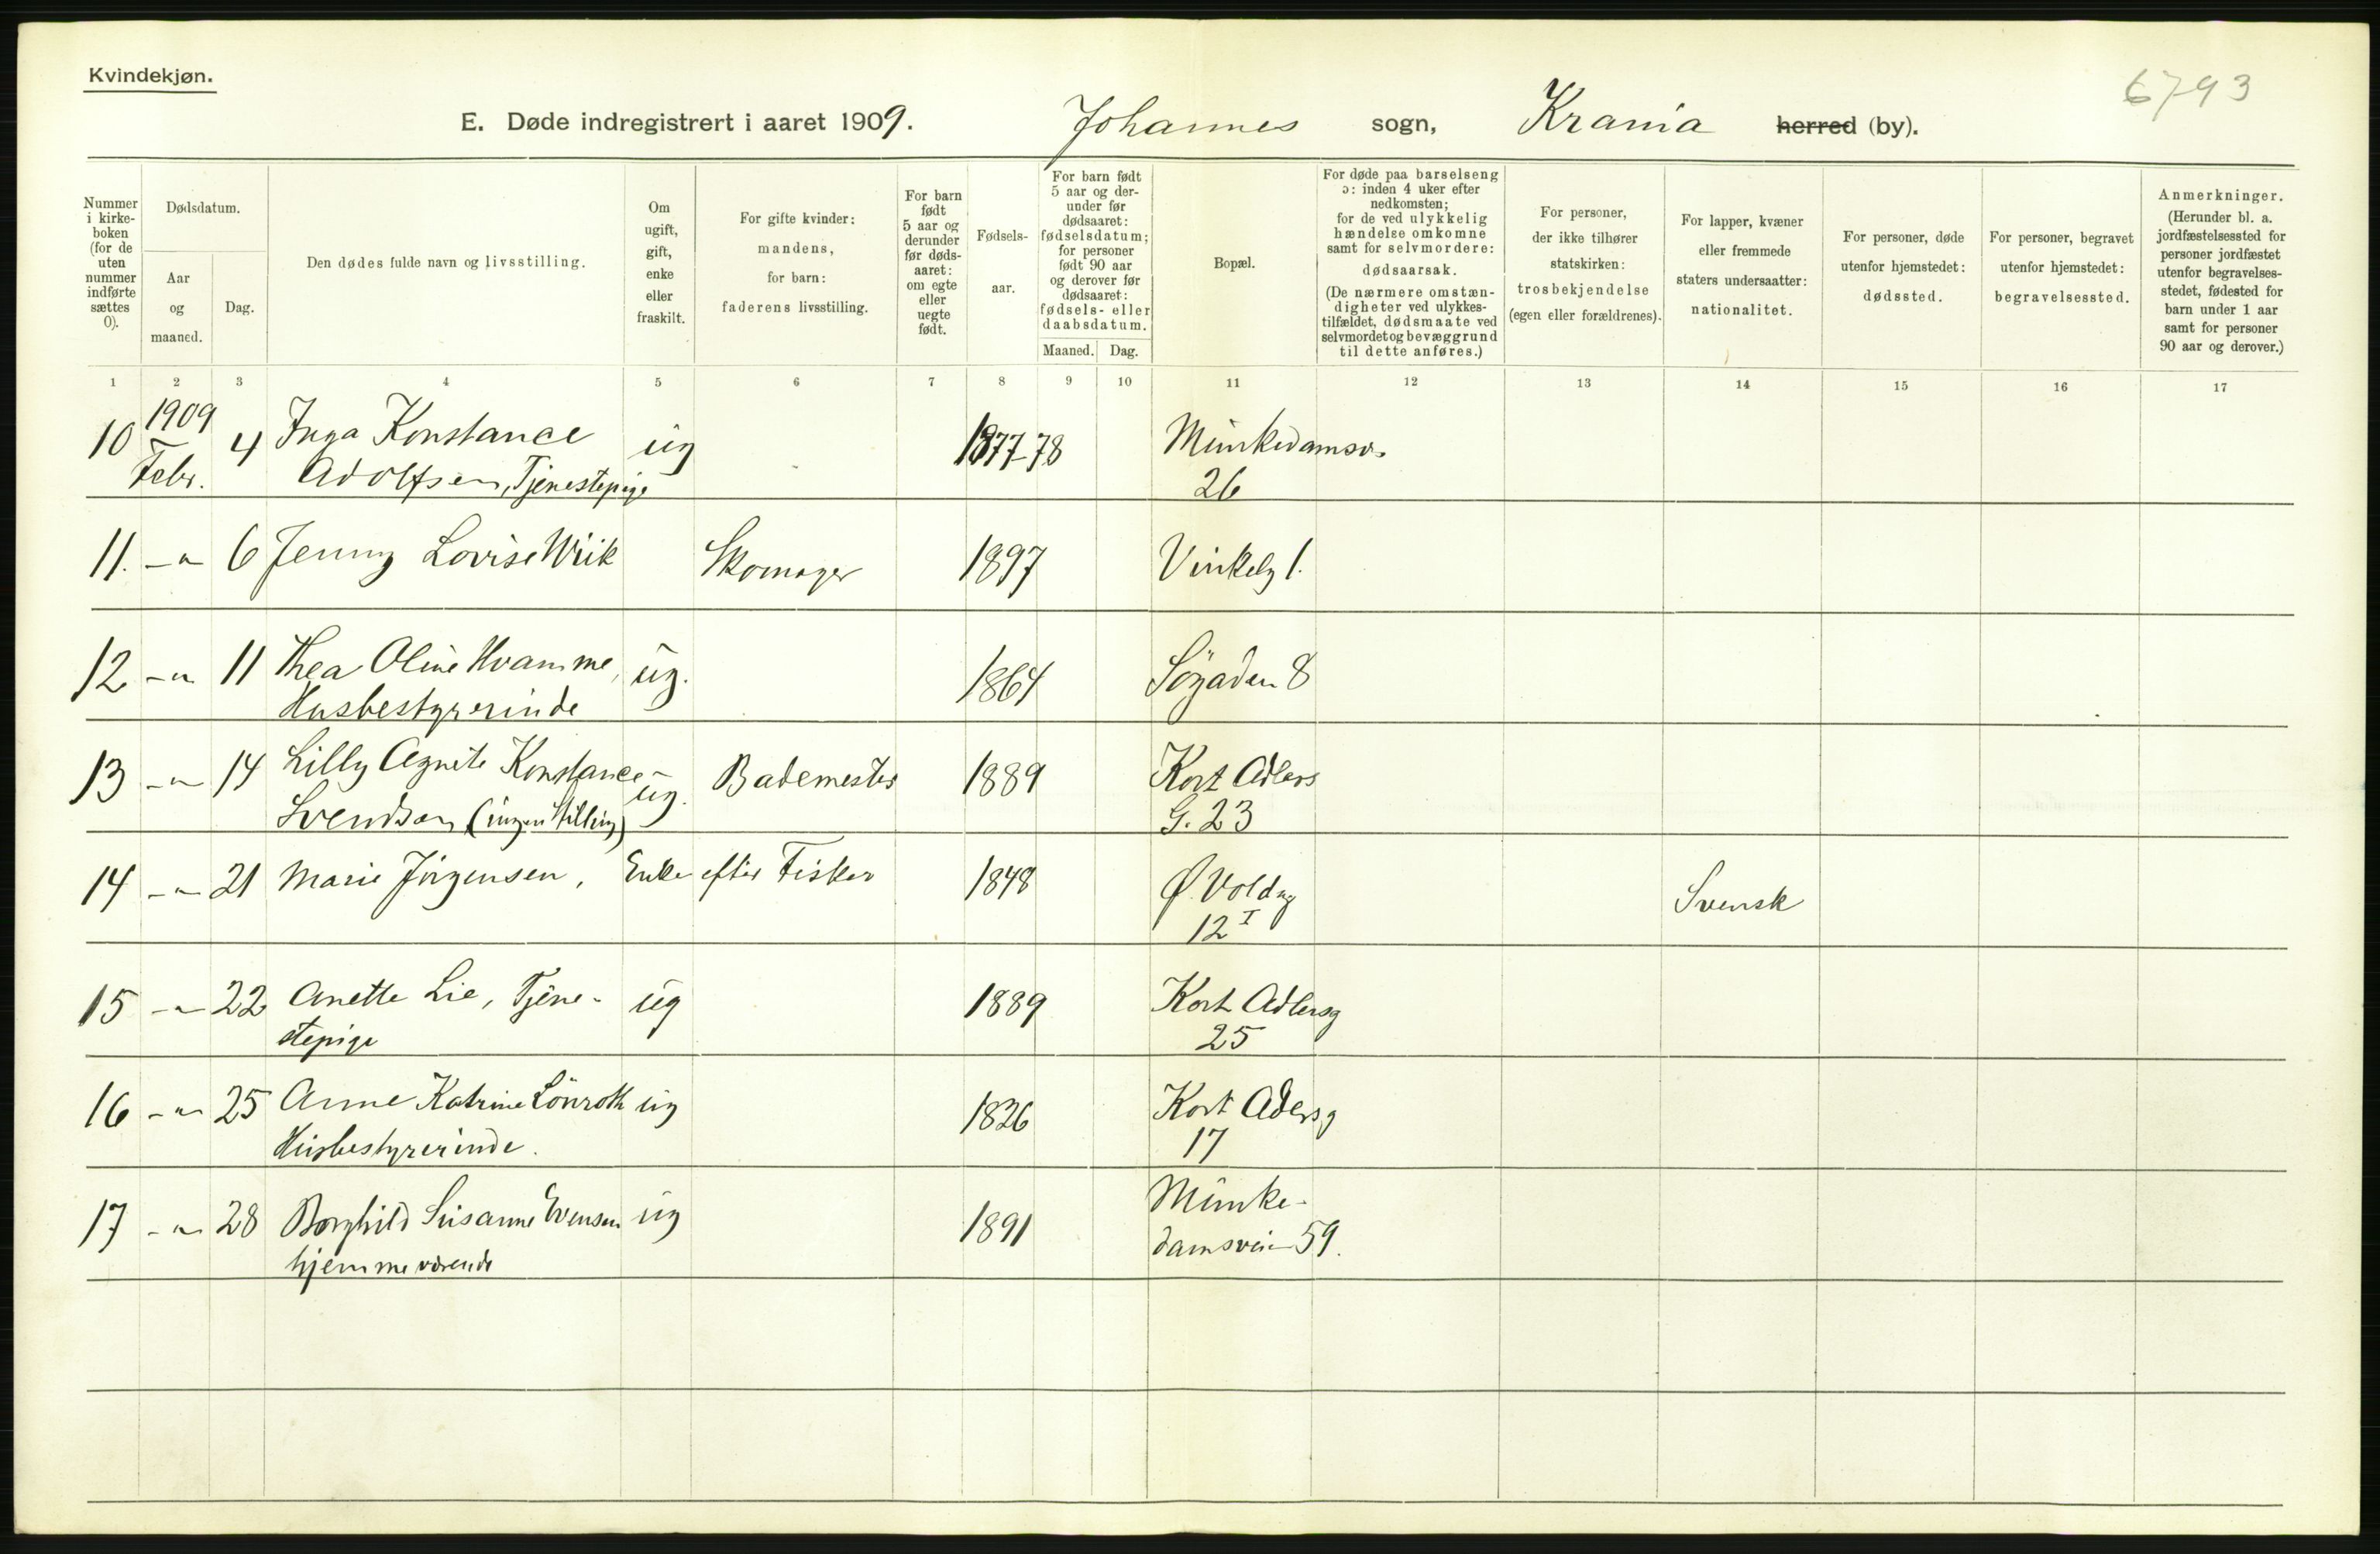 Kvindekjøn.
6793
E. Døde indregistrert i aaret 1909. Johannes sogn, Krania herred (by).
Nummer i kirke-boken (for de uten nummer indførte sættes 0).
Dødsdatum.
Aar og maaned.
Dag.
Den dødes fulde navn og livsstilling.
Om ugift, gift, enke eller fraskilt.
For gifte kvinder: mandens, for barn: faderens livsstilling.
For barn født 5 aar og derunder før døds-aaret: om egte eller uegte født.
Fødsels-aar.
For barn født 5 aar og der-under før dødsaaret: fødselsdatum; for personer født 90 aar og derover før dødsaaret: fødsels- eller daabsdatum.
Maaned. Dag.
Bopæl.
For døde paa barselseng ɔ: inden 4 uker efter nedkomsten; for de ved ulykkelig hændelse omkomne samt for selvmordere: dødsaarsak. (De nærmere omstæn-digheter ved ulykkes-tilfældet, dødsmaate ved selvmordet og bevæggrund til dette anføres.)
For personer, der ikke tilhører statskirken: trosbekjendelse (egen eller forældrenes).
For lapper, kvæner eller fremmede staters undersaatter: nationalitet.
For personer, døde utenfor hjemstedet: dødssted.
For personer, begravet utenfor hjemstedet: begravelsessted.
Anmerkninger. (Herunder bl. a. jordfæstelsessted for personer jordfæstet utenfor begravelses-stedet, fødested for barn under 1 aar samt for personer 90 aar og derover.)
1 2 3 4 5 6 7 8 9 10 11 12 13 14 15 16 17
10 1909 Febr. 4 Inga Konstance ug 1877-78 Munkedamsv.
Adolfsen, Tjenestepige 26
11. -"- 6 Jenny Lovise Wiik Skomager 1897 Vinkelg 1.
12 -"- 11 Thea Oline Hvamme, ug. 1864 Søgaden 8
Husbestyrerinde
13 -"- 14 Lilly Agnete Konstance ug. Bademester 1889 Kort Adlers
Svendsen (ingen Stilling) G. 23
14 -"- 21 Marie Jörgensen, Enke efter Fisker 1848 Ø. Voldg Svensk
12 I
15 -"- 22 Anette Lie, Tjene- ug 1889 Kort Adlersg
stepige 25
16 -"- 25 Anne Katrine Lönroth ug 1826 Kort Adersg
Husbestyrerinde. 17
17 -"- 28 Borghild Susanne Evensen ug 1891 Munke-
hjemmeværende damsvein 59.